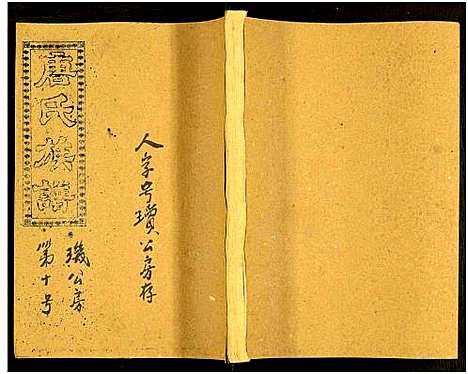 人字号璜公房存
唐氏族譜
璣公房
第十号